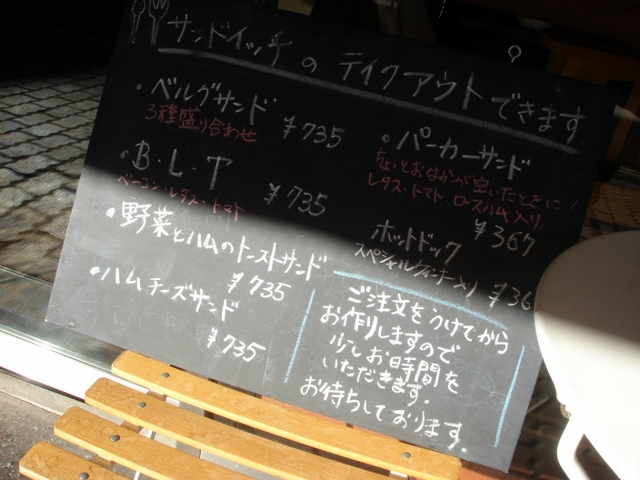 サンドイッチのテイクアウトできます
・ベルグサンド
3種盛り合わせ
¥735
・B・L・T
ベーコン・レタス・トマト
¥735
・野菜とハムのトーストサンド
¥735
・ハムチーズサンド
¥735
・パーカーサンド
ちょっとおなかが空いたときに!
レタス・トマト ロースハム入り
¥367
ホットドック
スペシャルウィンナー入り ¥36
ご注文をうけてから
お作りしますので
少しお時間を
いただきます.
お待ちしております.